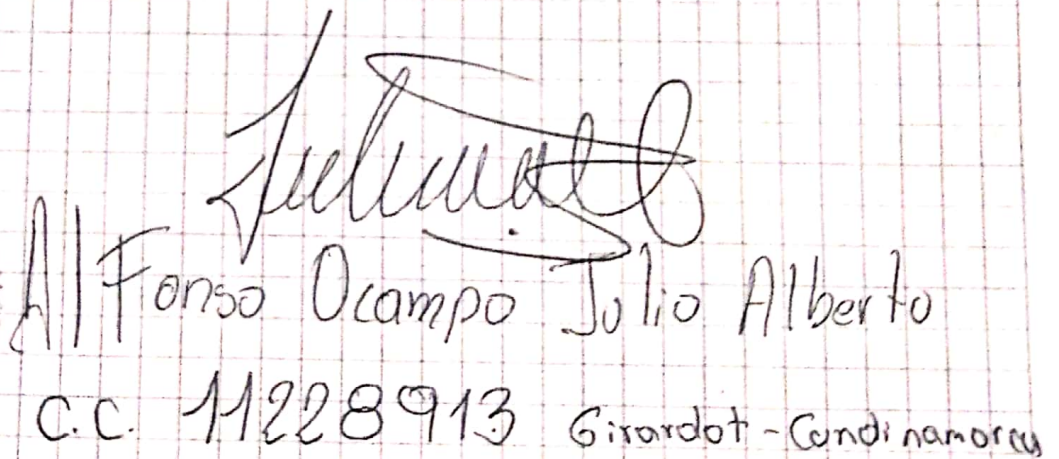 AlFonso Ocampo Julio Alberto
C.C. 11228913 Girardot - Cundinamarca